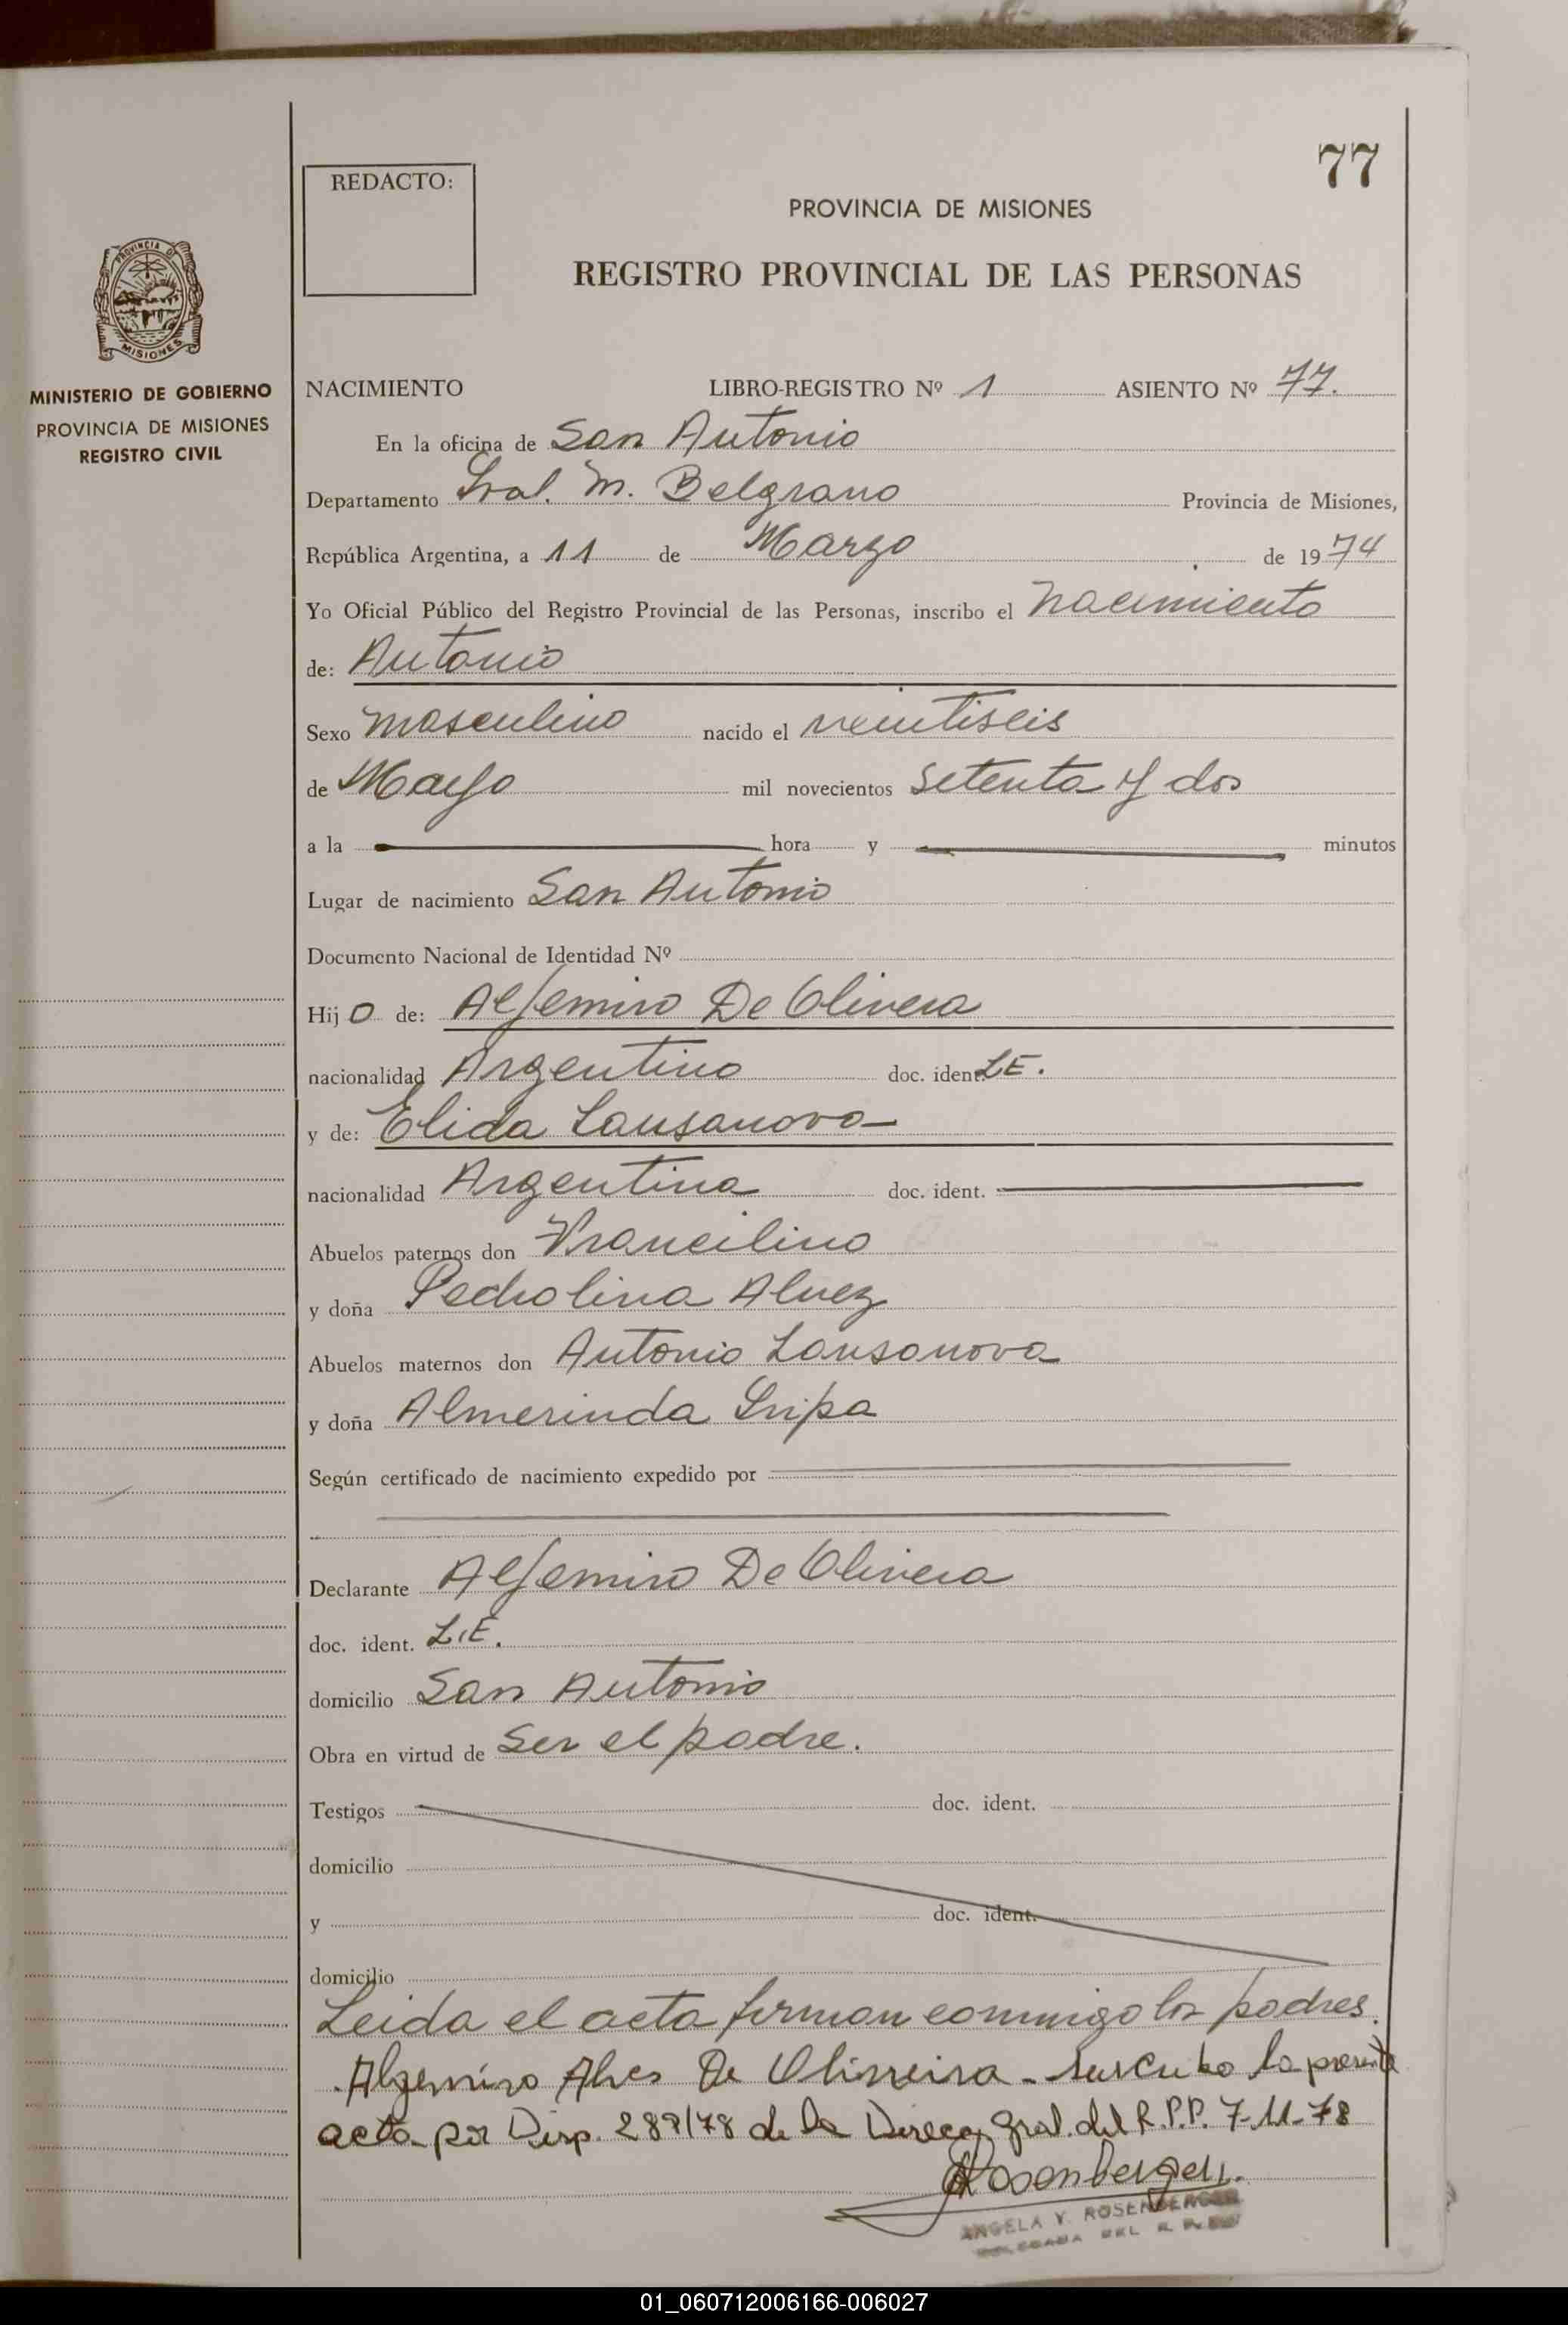 77
REDACTO:
PROVINCIA DE MISIONES
REGISTRO PROVINCIAL DE LAS PERSONAS
PROVINCIA DE
MISIONES
MINISTERIO DE GOBIERNO
PROVINCIA DE MISIONES
REGISTRO CIVIL
NACIMIENTO LIBRO-REGISTRO Nº 1 ASIENTO Nº 77.
En la oficina de San Antonio
Departamento Gral. M. Belgrano Provincia de Misiones,
República Argentina, a 11 de Marzo de 1974
Yo Oficial Público del Registro Provincial de las Personas, inscribo el nacimiento
de: Antonio
Sexo masculino nacido el veintiseis
de Mayo mil novecientos setenta y dos
a la hora y minutos
Lugar de nacimiento San Antonio
Documento Nacional de Identidad Nº
Hijo de: Aljemiro De Olivera
nacionalidad Argentino doc. ident. L.E.
y de: Elida Lansanova
nacionalidad Argentina doc. ident.
Abuelos paternos don Francilino
y doña Pedrolina Alvez
Abuelos maternos don Antonio Lansanova
y doña Almerinda
Según certificado de nacimiento expedido por
Declarante Aljemiro De Olivera
doc. ident. L.E.
domicilio San Antonio
Obra en virtud de ser el padre.
Testigos doc. ident.
domicilio
y doc. ident.
domicilio
Leida el acta firman conmigo los padres.
Algemiro Alves De Oliveira - suscribo la presente
acta por Disp. 289/78 de la Direcc. Gral. del R.P.P. 7-11-78
Rosenberger
ANGELA Y. ROSENBERGER
DELEGADA DEL R. P. P.
01_060712006166-006027